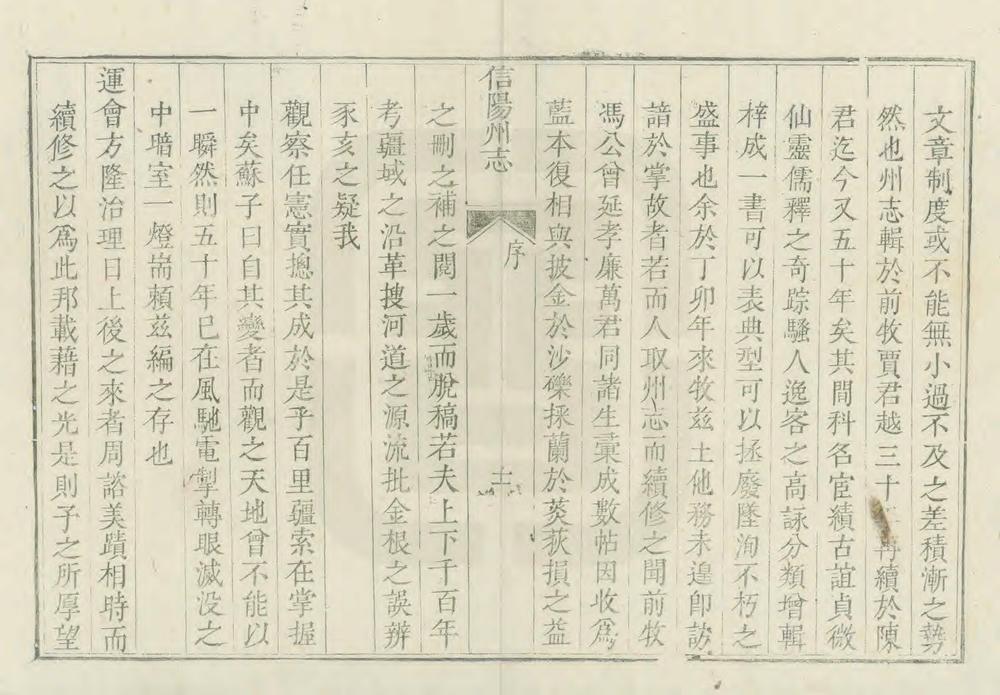 文章制度或不能無小過不及之差積漸之勢
然也州志輯於前牧賈君越三十再續於陳
君迄今又五十年矣其間科名宦績古誼貞微
仙靈儒釋之奇踪騷人逸客之高詠分類增輯
梓成一書可以表典型可以拯廢墜洵不朽之
盛事也余於丁卯年來牧茲土他務未遑卽訪
諳於掌故者若而人取州志而續修之聞前牧
馮公曾延孝廉萬君同諸生彙成數帖因收爲
藍本復相與披金於沙礫採蘭於葖荻損之益
信陽州志
序
十一
之刪之補之閱一歲而脫稿若夫上下千百年
考疆域之沿革搜河道之源流批金根之誤辨
豕亥之疑我
觀察任憲實摠其成於是乎百里疆索在掌握
中矣蘇子曰自其變者而觀之天地曾不能以
一瞬然則五十年已在風馳電掣轉眼滅没之
中暗室一燈耑頼茲編之存也
運會方隆治理日上後之來者周諮美蹟相時而
續修之以爲此邦載藉之光是則予之所厚望